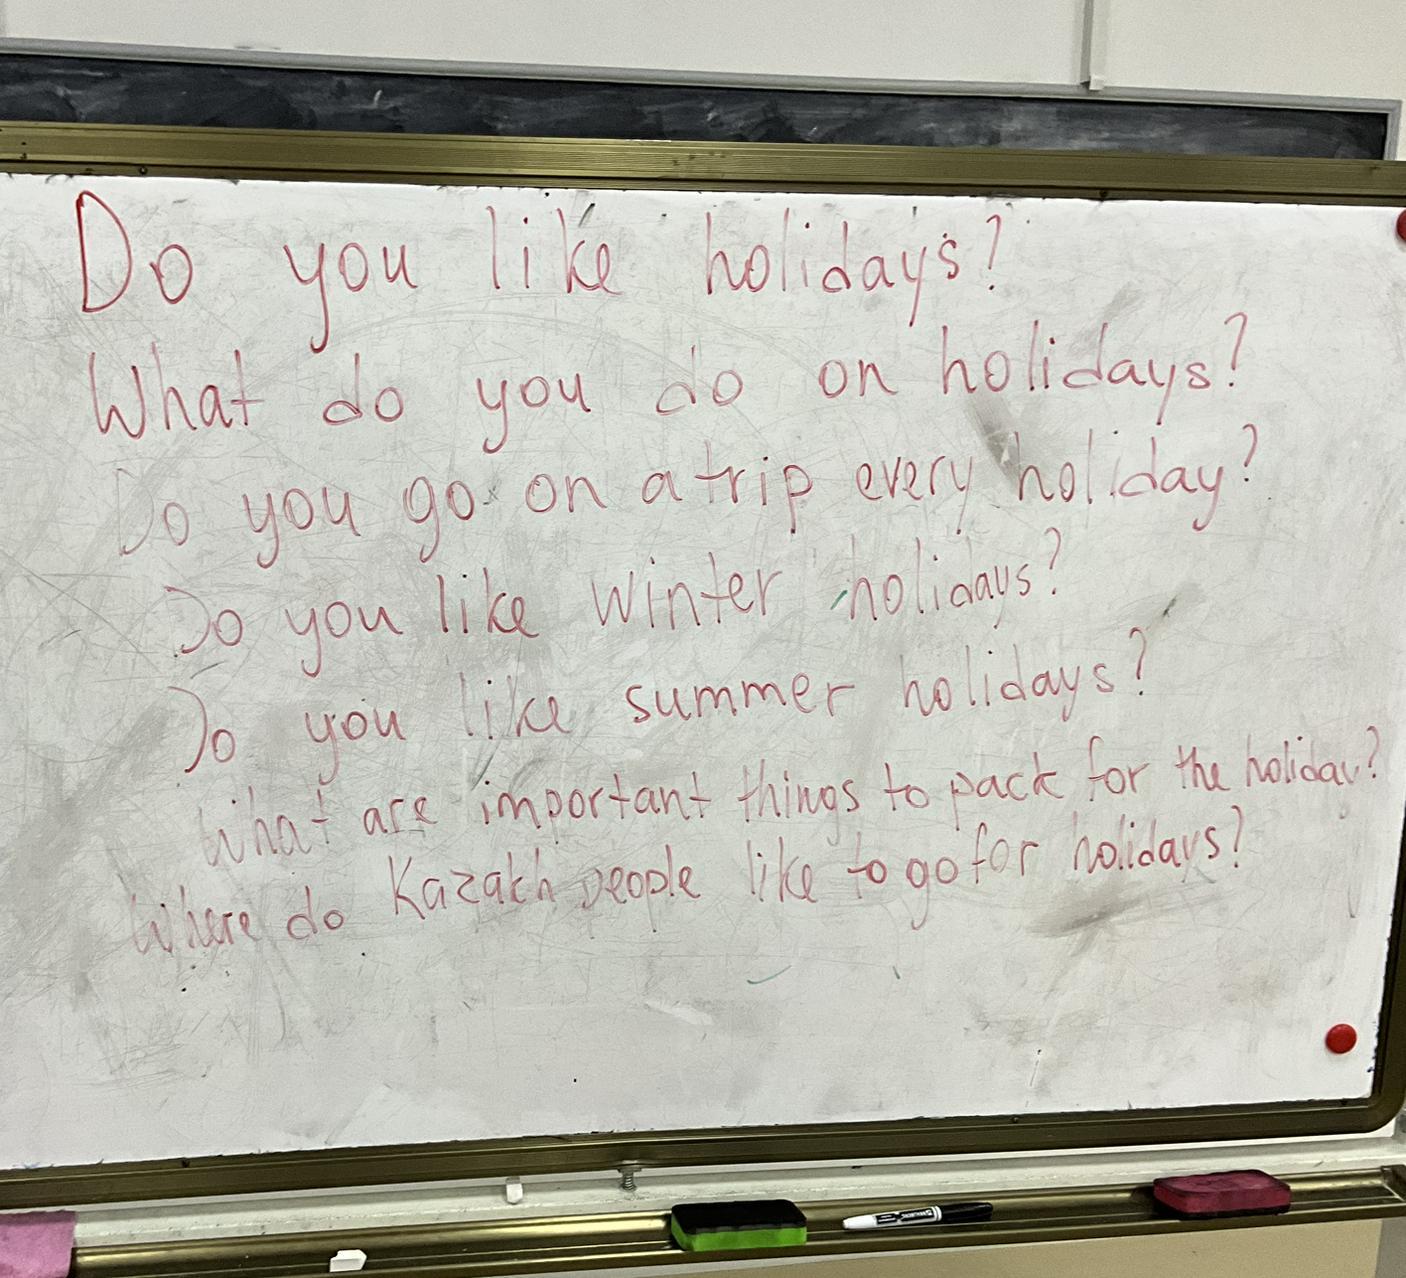 Do you like holidays?
What do you do on holidays?
Do you go on a trip every holiday?
Do you like winter holidays?
Do you like summer holidays?
What are important things to pack for the holiday?
Where do Kazakh people like to go for holidays?